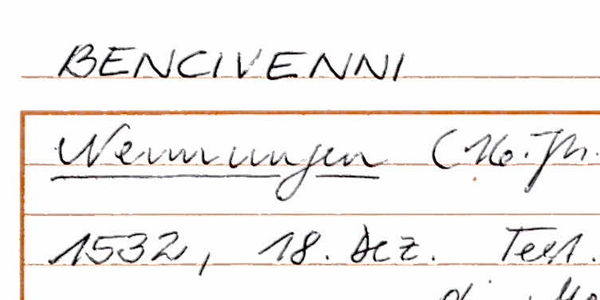 BENCIVENNI
Nennungen (16. Jh.
1532, 18. Dez. Test.
die